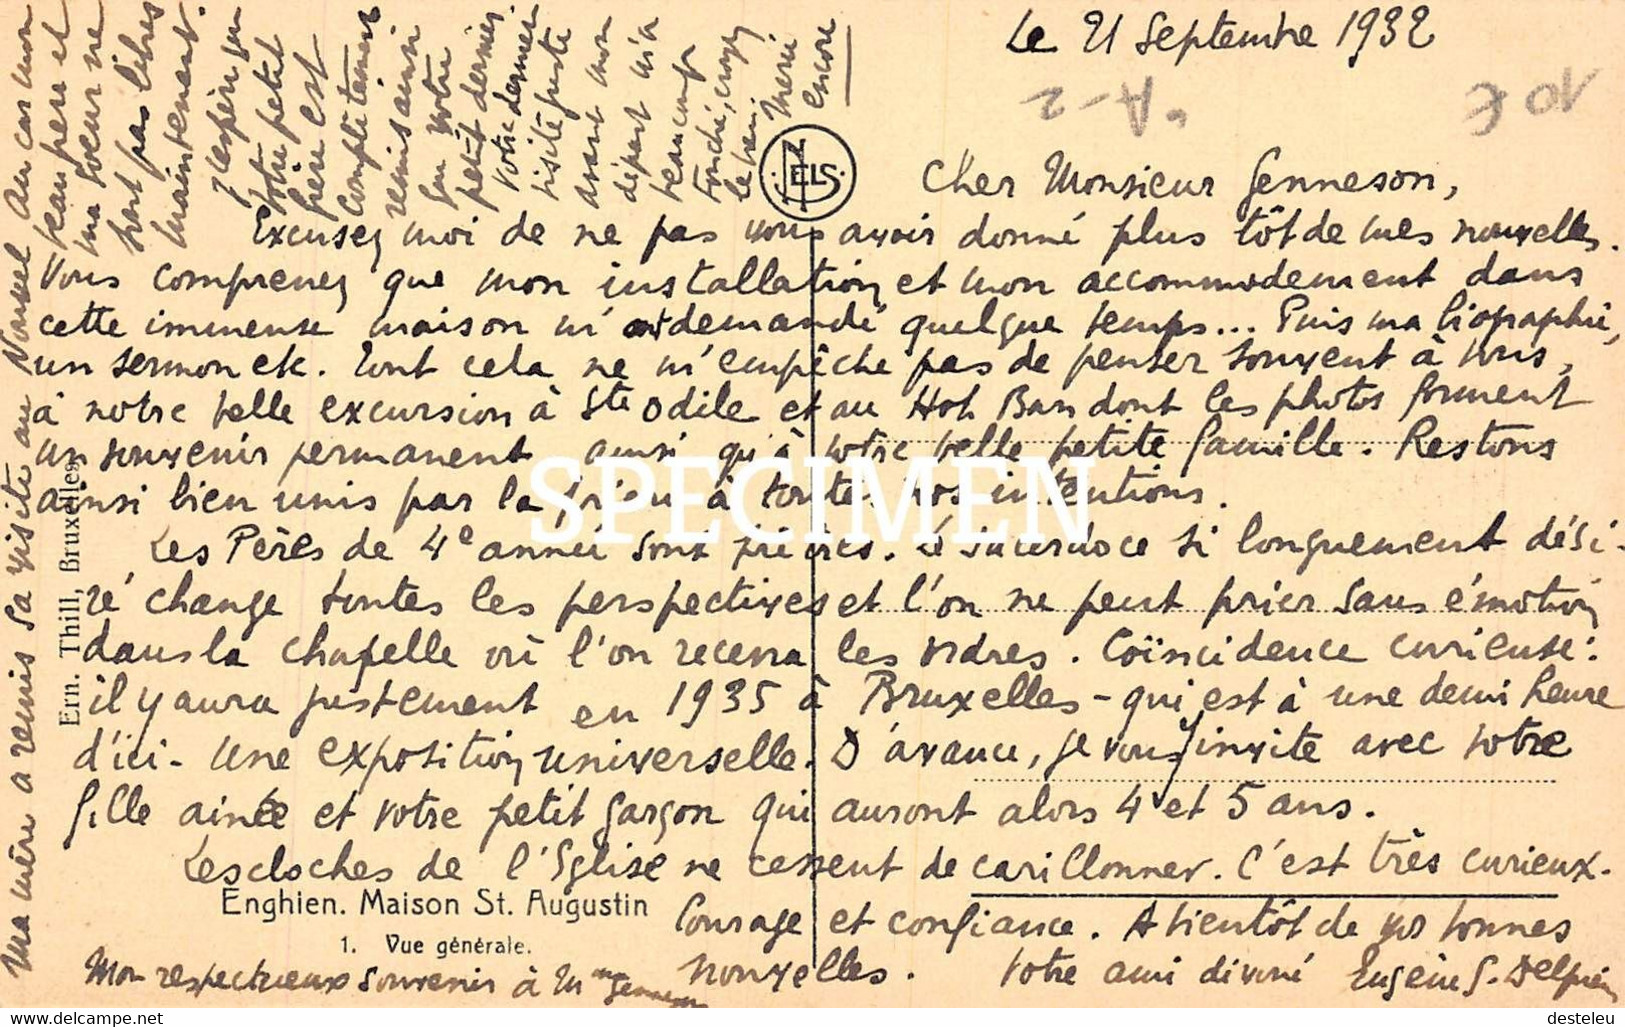 Le 21 Septembre 1932
A-2
10 €
Cher Monsieur Genneson,
Excusez moi de ne pas vous avoir donné plus tôt de mes nouvelles.
Vous comprenez que mon installation et mon accommodement dans
cette immense maison m' demandé quelque temps... Puis ma biographie,
un sermon etc. Tout cela ne m'empêche pas de penser souvent à vous,
à notre belle excursion à Ste Odile et au Hoh Bar dont les photos forment
un souvenir permanent ainsi qu'à votre belle petite famille. Restons
ainsi bien unis par la prière à toutes nos intentions.
Les Pères de 4e année sont prêtres. Le sacerdoce si longuement dési-
ré change toutes les perspectives et l'on ne peut prier sans émotion
dans la chapelle où l'on recevra les ordres. Coïncidence curieuse:
il y aura justement en 1935 à Bruxelles - qui est à une demi heure
d'ici - une exposition universelle. D'avance, je vous y invite avec votre
fille ainée et votre petit garçon qui auront alors 4 et 5 ans.
Les cloches de l'Eglise ne cessent de carillonner. C'est très curieux.
Courage et confiance. A bientôt de vos bonnes
nouvelles. Votre ami divoné Eugène S. Delpierre
Mon respectueux souvenir à Mme Genneson
Enghien. Maison St. Augustin
1. Vue générale.
Ern. Thill, Bruxelles
NELS
Ma mère a remis sa visite au Nouvel An car mon
beau père et
ma soeur ne
sont pas libres
maintenant.
J'espère que
votre petit
père est
complètement
remis ainsi
que votre
petit dernier
votre dernière
visite juste
avant mon
départ m'a
beaucoup
touché, croyez
le bien.
Merci
encore
SPECIMEN
© delcampe.net
desteleu